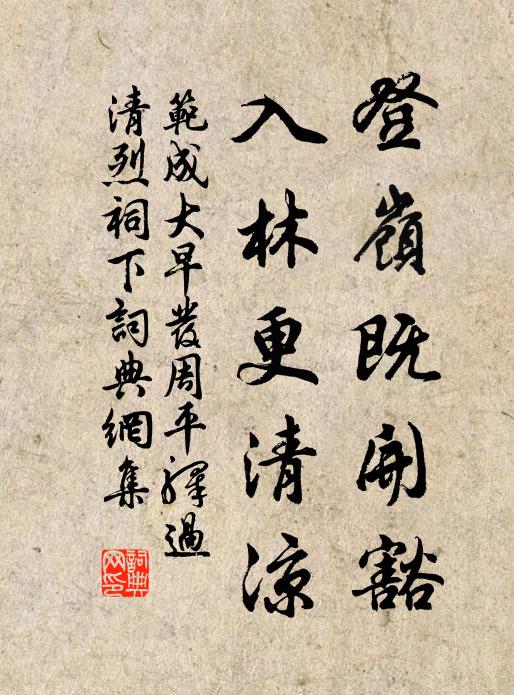 登嶺既開豁
入林更清涼
範成大早發周平驛過
清烈祠下詞典網集
詞典
网印